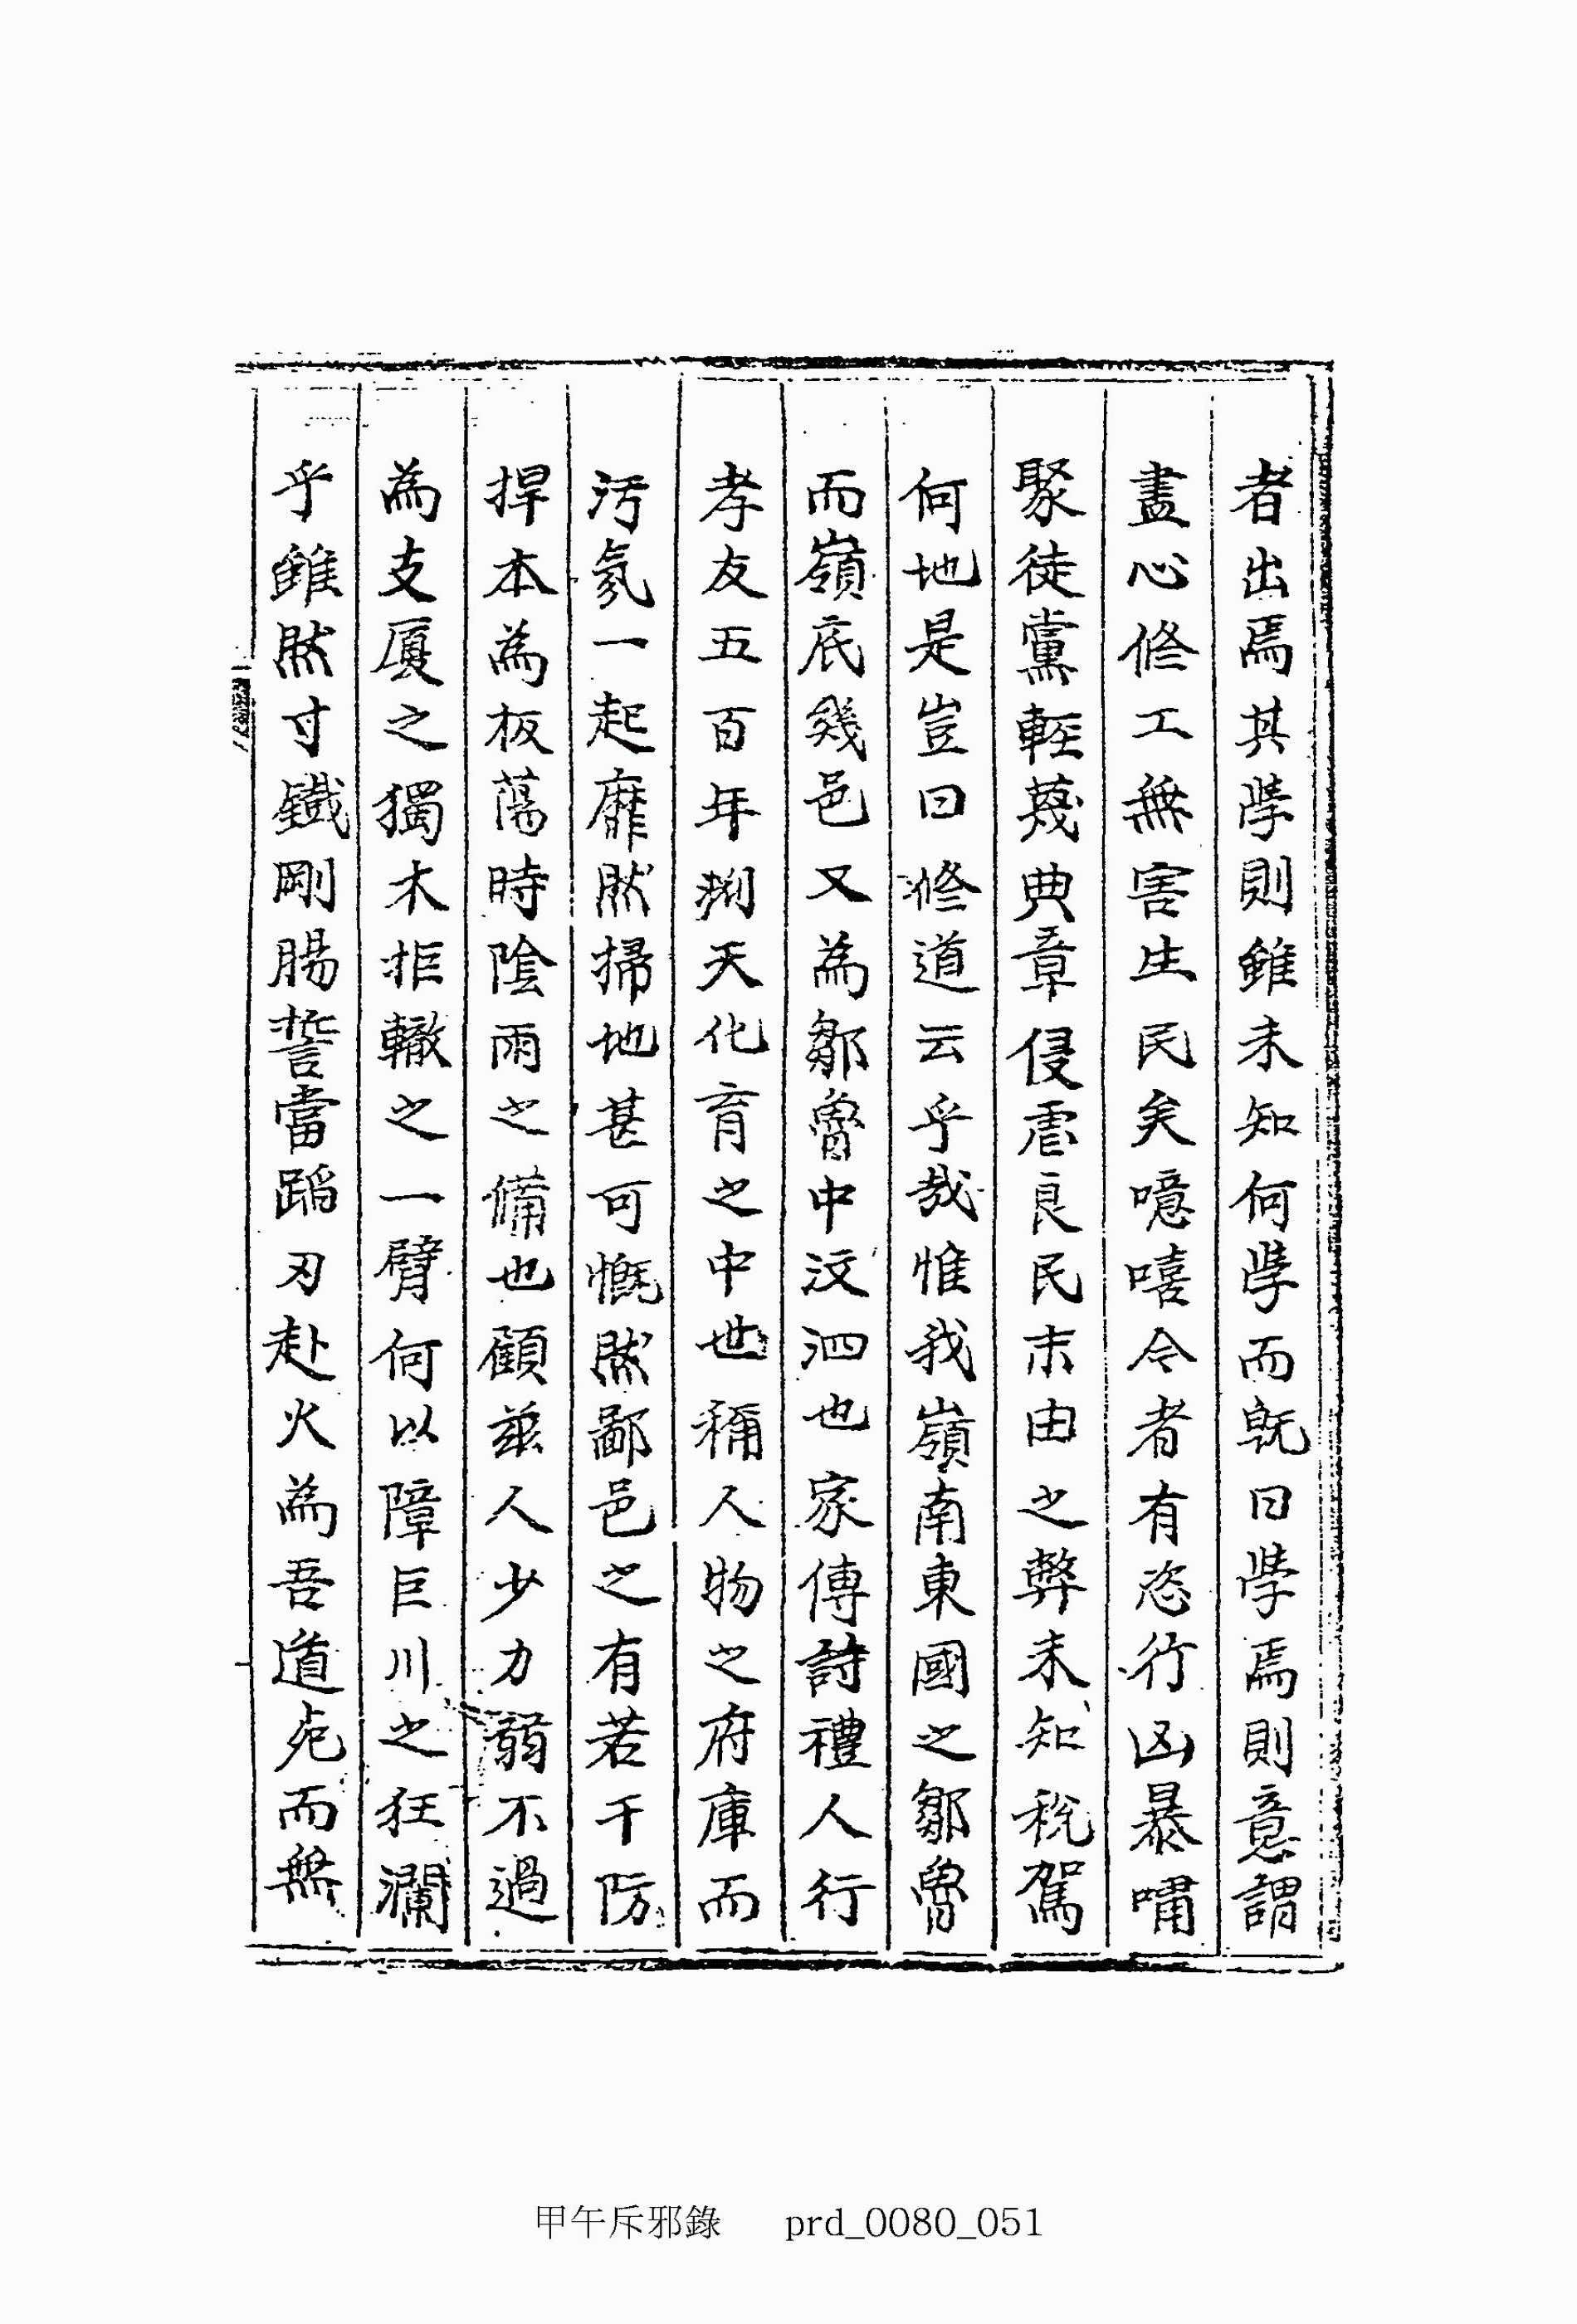 者出焉其學則雖未知何學而旣曰學焉則意謂
盡心修工無害生民矣噫嘻今者有恣行凶暴嘯
聚徒黨輕蔑典章侵虐良民末由之弊未知稅駕
何地是豈曰修道云乎哉惟我嶺南東國之鄒魯
而嶺底幾邑又為鄒魯中汶泗也家傳詩禮人行
孝友五百年捌天化育之中世稱人物之府庫而
汚氛一起靡然掃地甚可慨然鄙邑之有若干防
捍本為板蕩時陰雨之備也顧玆人少力弱不過
為支厦之獨木拒轍之一臂何以障巨川之狂瀾
乎雖然寸鐵剛腸誓當蹈刃赴火為吾道死而無
甲午斥邪錄 prd_0080_051